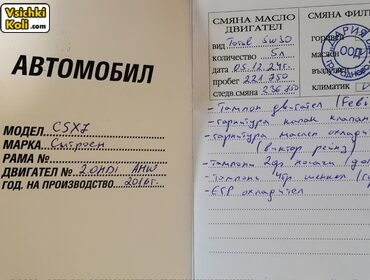 Vsichki
Koli.com
АВТОМОБИЛ
МОДЕЛ: C5X7
МАРКА Ситроен
РАМА №
ДВИГАТЕЛ № 2.0HDI AHW
ГОД. НА ПРОИЗВОДСТВО 2016г.
СМЯНА МАСЛО
ДВИГАТЕЛ
вид Total 5W30
количество 5л
дата 05.12.24г.
пробег 221 750
следв.смяна 236 750
СМЯНА ФИЛ
маслен
възду
климатик
- Тампон двигател (Febi
- гарнитура капак клапан
- гарнитура маслен охлади
(виктор рейнз)
- тампони
- Тампони
- ЕГР охладител